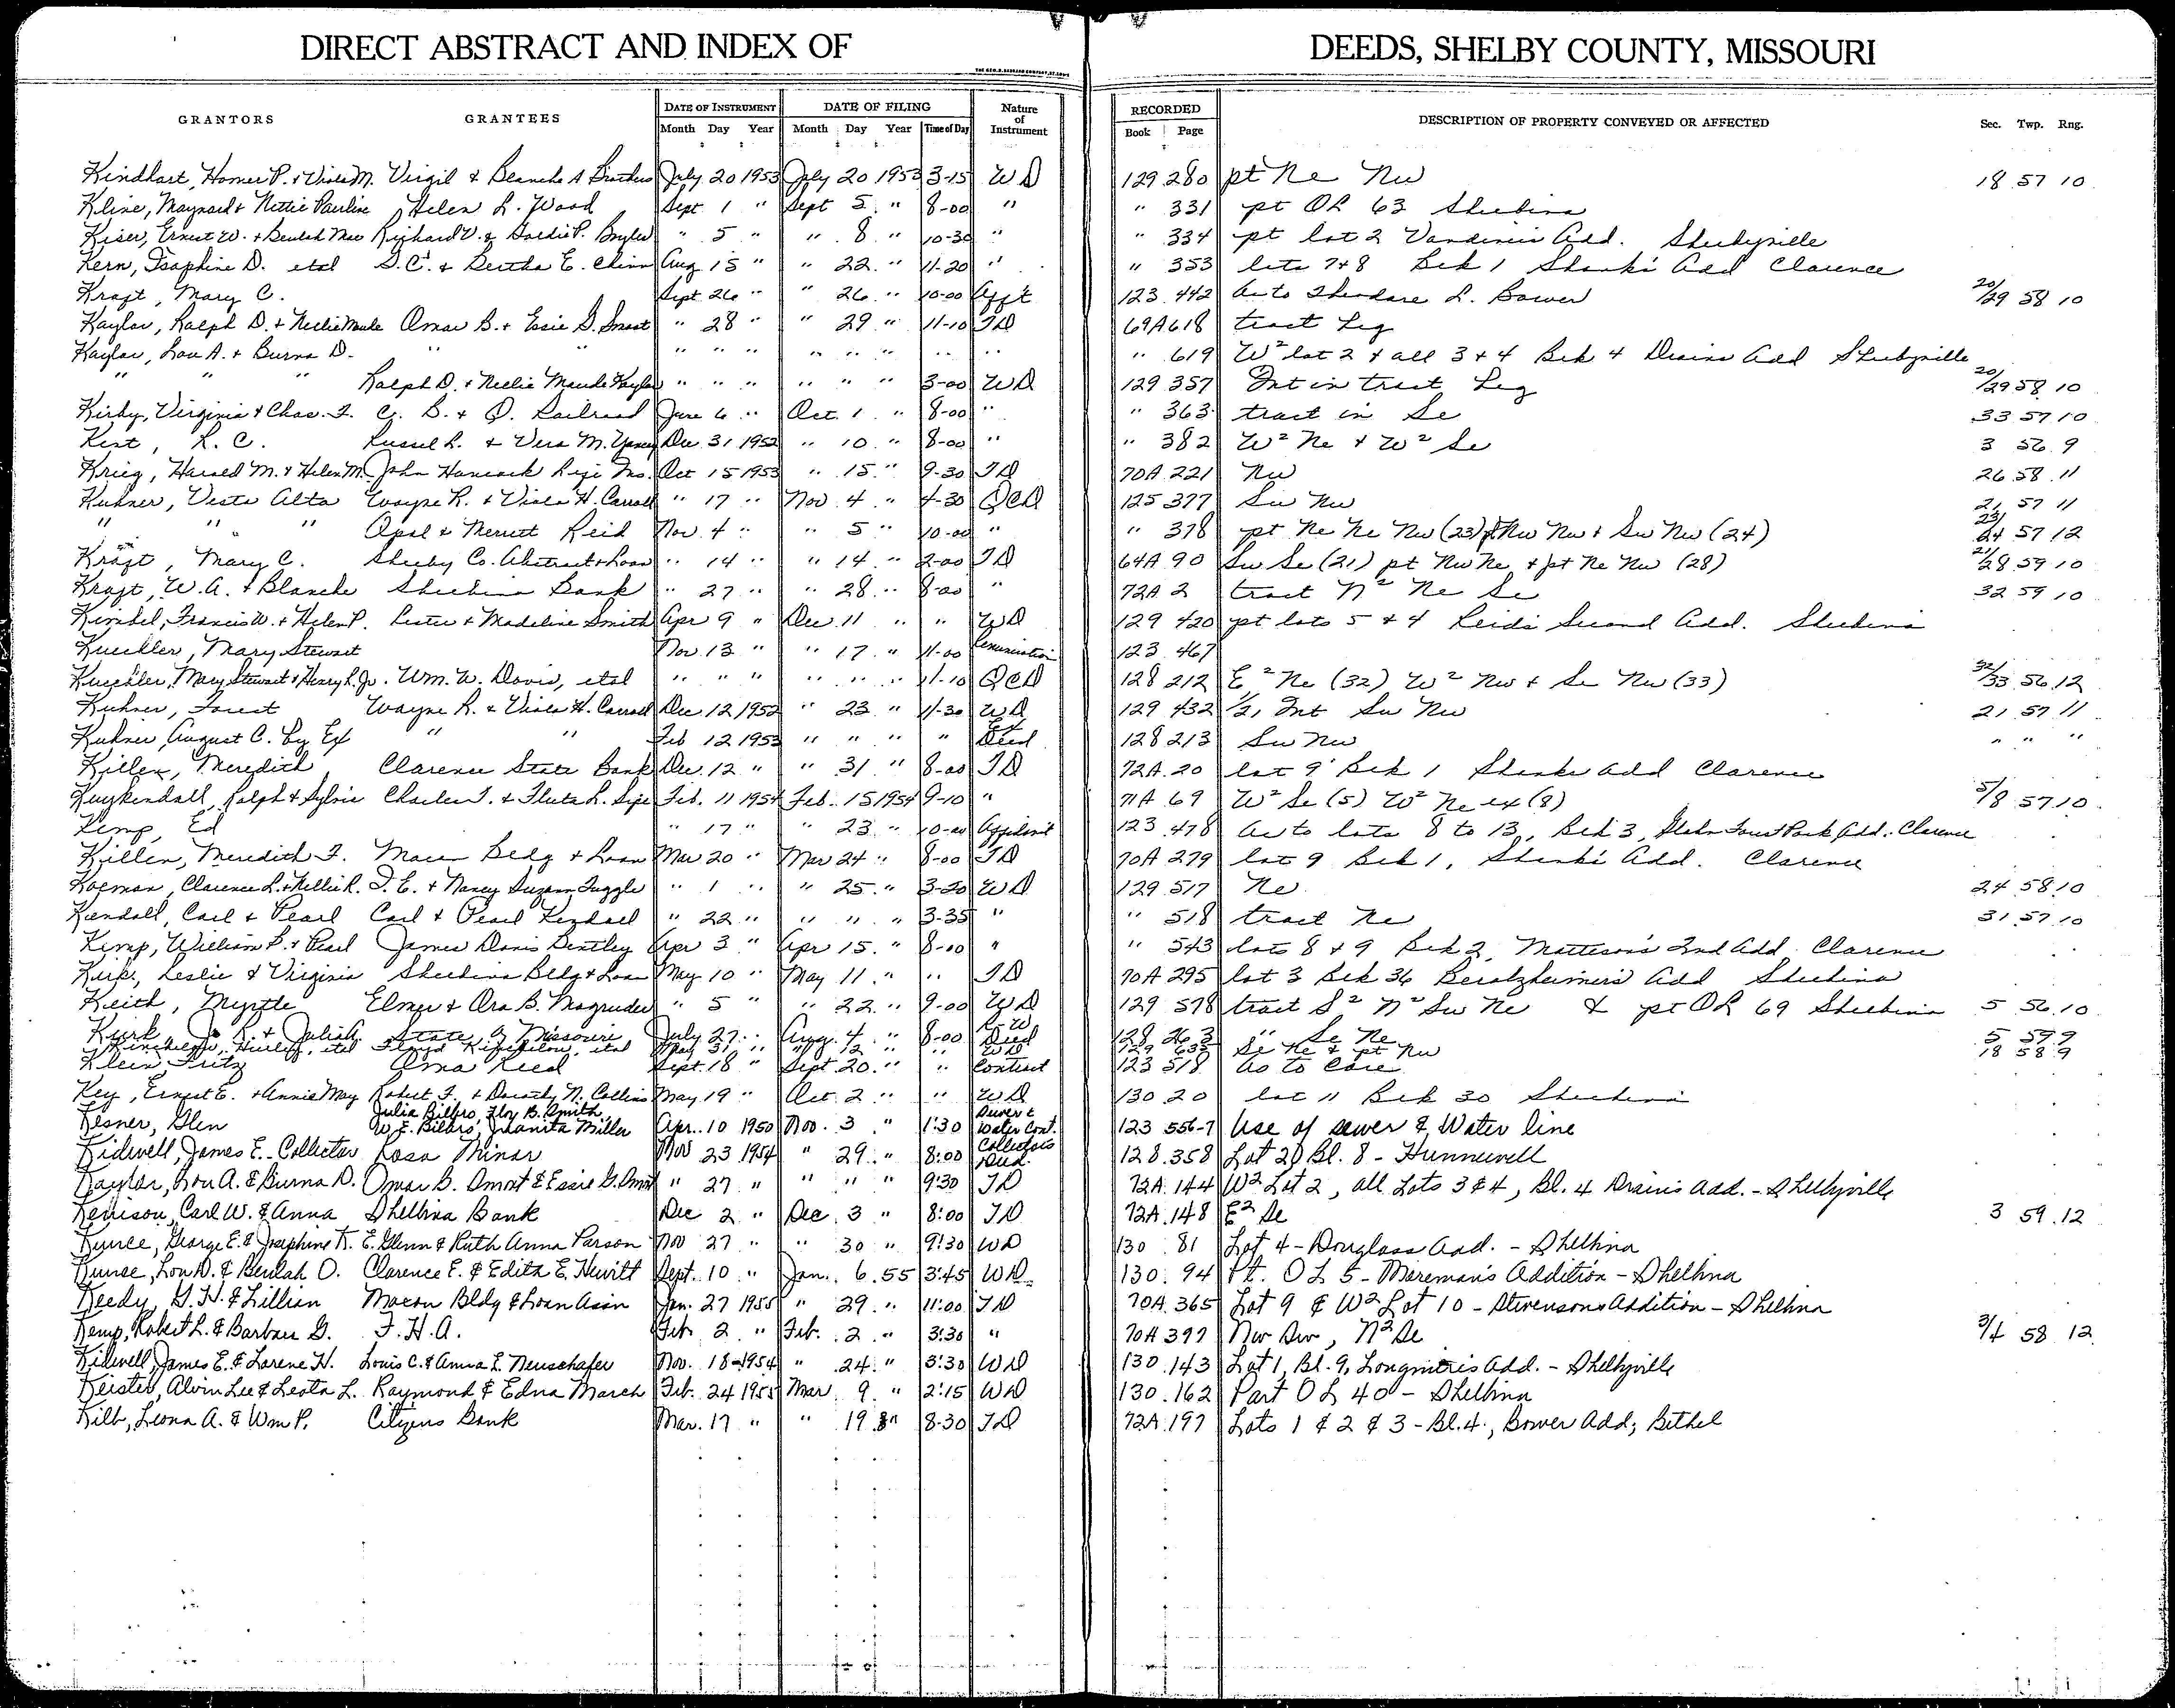 DIRECT ABSTRACT AND INDEX OF DEEDS, SHELBY COUNTY, MISSOURI
GRANTORS GRANTEES DATE OF INSTRUMENT DATE OF FILING Nature of Instrument RECORDED DESCRIPTION OF PROPERTY CONVEYED OR AFFECTED Sec. Twp. Rng.
Month Day Year Month Day Year Time of Day Book Page
Kindhart, Homer P. & Viola M. Virgil & Blanche A July 20 1953 July 20 1953 3-15 WD 129 280 pt Ne Nw 18 57 10
Kline, Maynard & Nettie Pauline Helen L. Wood Sept 1 " Sept 5 " 8-00 " " 331 pt OL 63 Shelbina
Kiser, Ernest W. & Beulah Mae Richard V. & Goldie P. " 5 " " 8 " 10-30 " " 334 pt lot 2 Add. Shelbyville
Kern, D. etal S.C. & Bertha E. Chinn Aug 15 " " 22 " 11-20 " " 353 lots 7 & 8 Blk 1 Shanks Add Clarence
Kraft, Mary C. Sept 26 " " 26 " 10-00 Aff't 123 442 as to Theodore L. Bower 20/29 58 10
Kaylor, Ralph D. & Nellie Maude Omar B. & Essie G. Smoot " 28 " " 29 " 11-10 TD 69A 618 tract Leg
Kaylor, Lou A. & Burna D. " " " " " " " " " " " 619 W² lot 2 & all 3 & 4 Blk 4 Drains Add Shelbyville
" " " Ralph D. & Nellie Maude Kaylor " " " " " " 3-00 WD 129 357 Int in tract Leg 20/29 58 10
Kirby, Virginia & Chas. F. C. B. & Q. Railroad June 6 " Oct 1 " 8-00 " " 363 tract in Se 33 57 10
Kent, R. C. Russel L. & Vera M. Yancey Dec 31 1952 " 10 " 8-00 " " 382 W² Ne & W² Se 3 56 9
Krieg, Harold M. & Helen M. John Hancock Life Ins. Oct 15 1953 " 15 " 9-30 TD 70A 221 Nw 26 58 11
Kuhner, Vesta Alta Wayne R. & Viola H. Carroll " 17 " Nov 4 " 4-30 QCD 125 377 Sw Nw 21 57 11
" " " Opal & Merritt Reid Nov 4 " " 5 " 10-00 " " 378 pt Ne Ne Nw (23) pt Nw Nw & Sw Nw (24) 23/24 57 12
Kraft, Mary C. Shelby Co. Abstract & Loan " 14 " " 14 " 2-00 TD 64A 90 Sw Se (21) pt Nw Ne & pt Ne Nw (28) 21/28 59 10
Kraft, W. A. & Blanche Shelbina Bank " 27 " " 28 " 8-00 " 72A 2 tract N² Ne Se 32 59 10
Kimbel, Francis W. & Helen P. Lester & Madeline Smith Apr 9 " Dec 11 " " WD 129 420 pt lots 5 & 4 Reids Second Add. Shelbina
Kueckler, Mary Stewart Nov 13 " " 17 " 11-00 Renunciation 123 467
Kueckler, Mary Stewart & Henry L. Jr. Wm. W. Davis, etal " " " " " " 11-10 QCD 128 212 E² Ne (32) W² Nw & Se Nw (33) 32/33 56 12
Kuhner, Forest Wayne R. & Viola H. Carroll Dec 12 1952 " 23 " 11-30 WD 129 432 1/21 Int Sw Nw 21 57 11
Kuhner, August C. by Ex " " Feb 12 1953 " " " " Ex Deed 128 213 Sw Nw " " "
Killen, Meredith Clarence State Bank Dec. 12 " " 31 " 8-00 TD 72A 20 lot 9 Blk 1 Shanks Add Clarence
Kuykendall, Ralph & Sylvia Charles T. & Fleeta L. Feb. 11 1954 Feb. 15 1954 9-10 " 71A 69 W² Se (5) W² Ne ex (8) 5/8 57 10
Kemp, Ed " 17 " " 23 " 10-00 Affidavit 123 478 as to lots 8 to 13, Blk 3, Forest Park Add. Clarence
Killen, Meredith F. Macon Bldg & Loan Mar 20 " Mar 24 " 8-00 TD 70A 279 lot 9 Blk 1, Shanks Add. Clarence
Kagman, Clarence L. & Nellie R. T. E. & Nancy Suzann Tuggle " 1 " " 25 " 3-20 WD 129 517 Ne 24 58 10
Kendall, Carl & Pearl Carl & Pearl Kendall " 22 " " " " 3-35 " " 518 tract Ne 31 57 10
Kemp, William P. & Pearl James Davis Bentley Apr 3 " Apr 15 " 8-00 " " 543 lots 8 & 9 Blk 2, Mattison's 2nd Add. Clarence
Kirk, Leslie & Virginia Shelbina Bldg & Loan May 10 " May 11 " " TD 70A 295 lot 3 Blk 36 Benatzheimers Add Shelbina
Keith, Myrtle Elmer & Ora B. Magruder " 5 " " 22 " 9-00 WD 129 578 tract S² N² Sw Ne & pt OL 69 Shelbina 5 56 10
Kirk, J. R. & Julia A. State of Missouri July 27 " Aug. 4 " 8-00 R-W Deed 128 263 " Se Ne 5 57 9
Kincheloe, etal Kincheloe, etal May 31 " " 12 " " WD 129 635 Se Ne & pt Nw 18 58 9
Klein, Fritz Alma Reed Sept. 18 " Sept. 20 " " Contract 123 518 As to Care
Key, Ernest E. & Annie May Robert F. & Dorothy N. Collins May 19 " Oct. 2 " " WD 130 20 lot 11 Blk 30 Shelbina
Kesner, Glen Julia Billers, Floy B. Smith, W. E. Billers, Juanita Miller Apr. 10 1950 Nov. 3 " 1:30 Sewer & Water Cont. 123 556-7 Use of sewer & Water line
Kidwell, James E. - Collector Rosa Minor Nov 23 1954 " 29 " 8:00 Collectors Deed 128 358 Lot 20 Bl. 8 - Hunnewell
Kaylor, Lou A. & Burna D. Omar B. Smoot & Essie G. Smoot " 27 " " " " 9:30 TD 72A 144 W² Lot 2, all Lots 3 & 4, Bl. 4 Drain's Add. - Shelbyville
Kenison, Carl W. & Anna Shelbina Bank Dec 2 " Dec. 3 " 8:00 TD 72A 148 E² Se 3 59 12
Kunce, George E. & Josephine K. E. Glenn & Ruth Anna Parson Nov 27 " " 30 " 9:30 WD 130 81 Lot 4 - Douglass Add. - Shelbina
Kunce, Lou D. & Beulah O. Clarence E. & Edith E. Hewitt Sept. 10 " Jan. 6 55 3:45 WD 130 94 Pt. OL 5 - Mereman's Addition - Shelbina
Keedy, G. H. & Lillian Macon Bldg & Loan Assn Jan. 27 1955 " 29 " 11:00 TD 70A 365 Lot 9 & W² Lot 10 - Stevensons Addition - Shelbina
Kemp, Robert L. & Barbara G. F.H.A. Feb 2 " Feb. 2 " 3:30 " 70A 397 Nw Sw, N² Se 3/4 58 12
Kidwell, James E. & Lorene H. Louis C. & Anna L. Neuschafer Nov. 18-1954 " 24 " 3:30 WD 130 143 Lot 1, Bl. 9, Add. - Shelbyville
Keister, Alvin Lee & Leota L. Raymond & Edna March Feb. 24 1955 Mar 9 " 2:15 WD 130 162 Part OL 40 - Shelbina
Kilb, Leona A. & Wm P. Citizens Bank Mar. 17 " " 19 " 8-30 TD 72A 197 Lots 1 & 2 & 3 - Bl. 4, Bower Add; Bethel